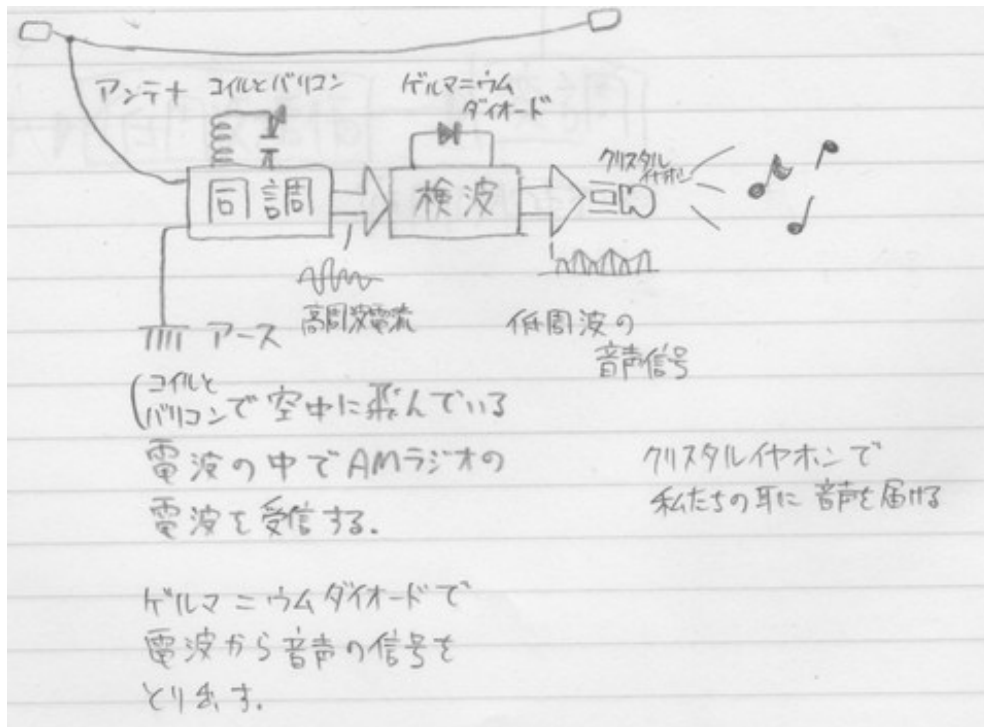 アンテナ
コイルとバリコン
ゲルマニウム
ダイオード
同調
検波
クリスタル
イヤホン
高周波電流
低周波の
音声信号
アース
コイルと
バリコンで空中に飛んでいる
電波の中でAMラジオの
電波を受信する.
クリスタルイヤホンで
私たちの耳に音声を届ける
ゲルマニウムダイオードで
電波から音声の信号を
とり出す.